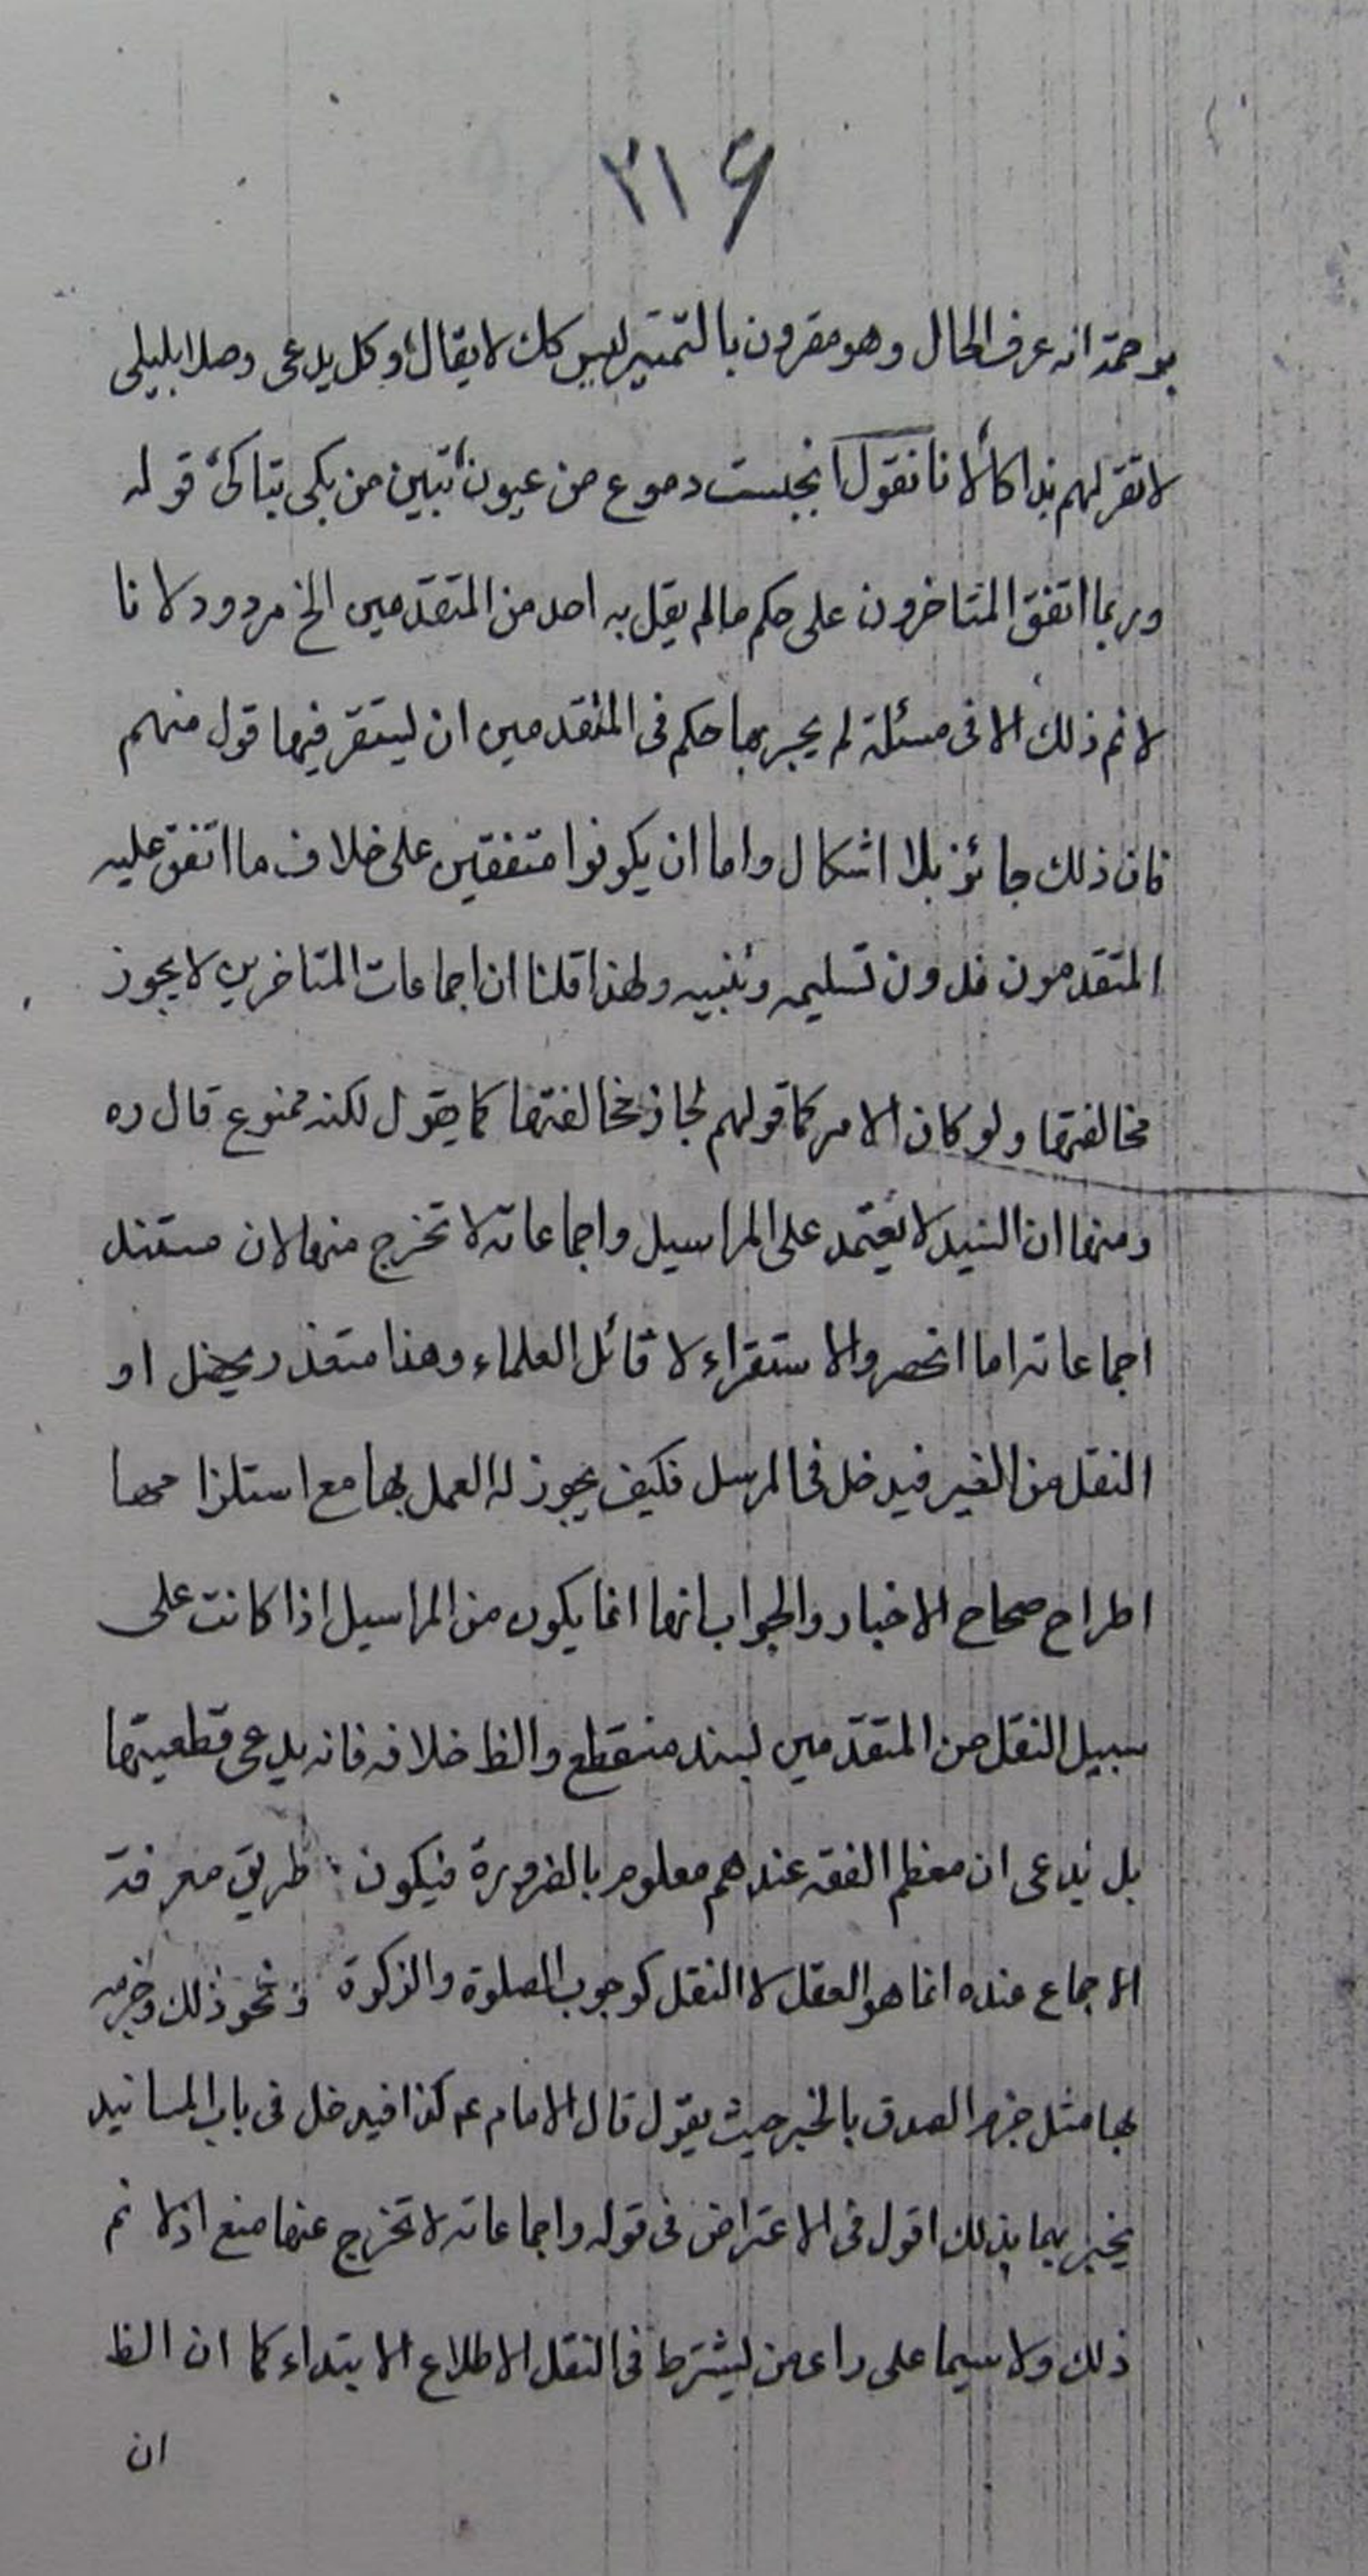 ٣١۶
انه عرف الحال وهو مقرون بالتمييز ليس كك لا يقال وكل يدعى وصلا بليلى
لا تقر لهم بذاكا لانا نقول انبجست دموع من عيون تبين من بكى تباكى قوله
وربما اتفق المتاخرون على حكم ما لم يقل به احد من المتقدمين الخ مردود لانا
لا نم ذلك الا فى مسئلة لم يجر بها حكم فى المتقدمين ان ليتقر فيها قول منهم
فان ذلك جائز بلا اشكال واما ان يكونوا متفقين على خلاف ما اتفق عليه
المتقدمون فدون تسليمه ولهذا قلنا ان اجماعات المتاخرين لا يجوز
مخالفتها ولو كان الامر كما قولهم لجاز مخالفتها كما يقول لكنه ممنوع قال ره
ومنها ان السيد لا يعتمد على المراسيل واجماعاته لا تخرج منها لان مستند
اجماعاته اما الحصر والاستقراء لا قائل العلماء وهذا متعذر او
النقل من الغير فيدخل فى المرسل فكيف يجوز له العمل بها مع استلزامها
اطراح صحاح الاخبار والجواب انها انما يكون من المراسيل اذا كانت على
سبيل النقل من المتقدمين بسند منقطع والظ خلافه فانه يدعى قطعيتها
بل يدعى ان معظم الفقه عندهم معلوم بالضرورة فيكون طريق معرفة
الاجماع عنده انما هو العقل لا النقل كوجوب الصلوة والزكوة ونحو ذلك وخبره
بها مثل جزم الصدق بالخبر حيث يقول قال الامام عم كذا فيدخل فى باب المسانيد
يخبر بها بذلك اقول فى الاعتراض فى قوله واجماعاته لا تخرج عنها منع اذ لا نم
ذلك ولا سيما على راى من ليشترط فى النقل الاطلاع الابتداء كما ان الظ
ان